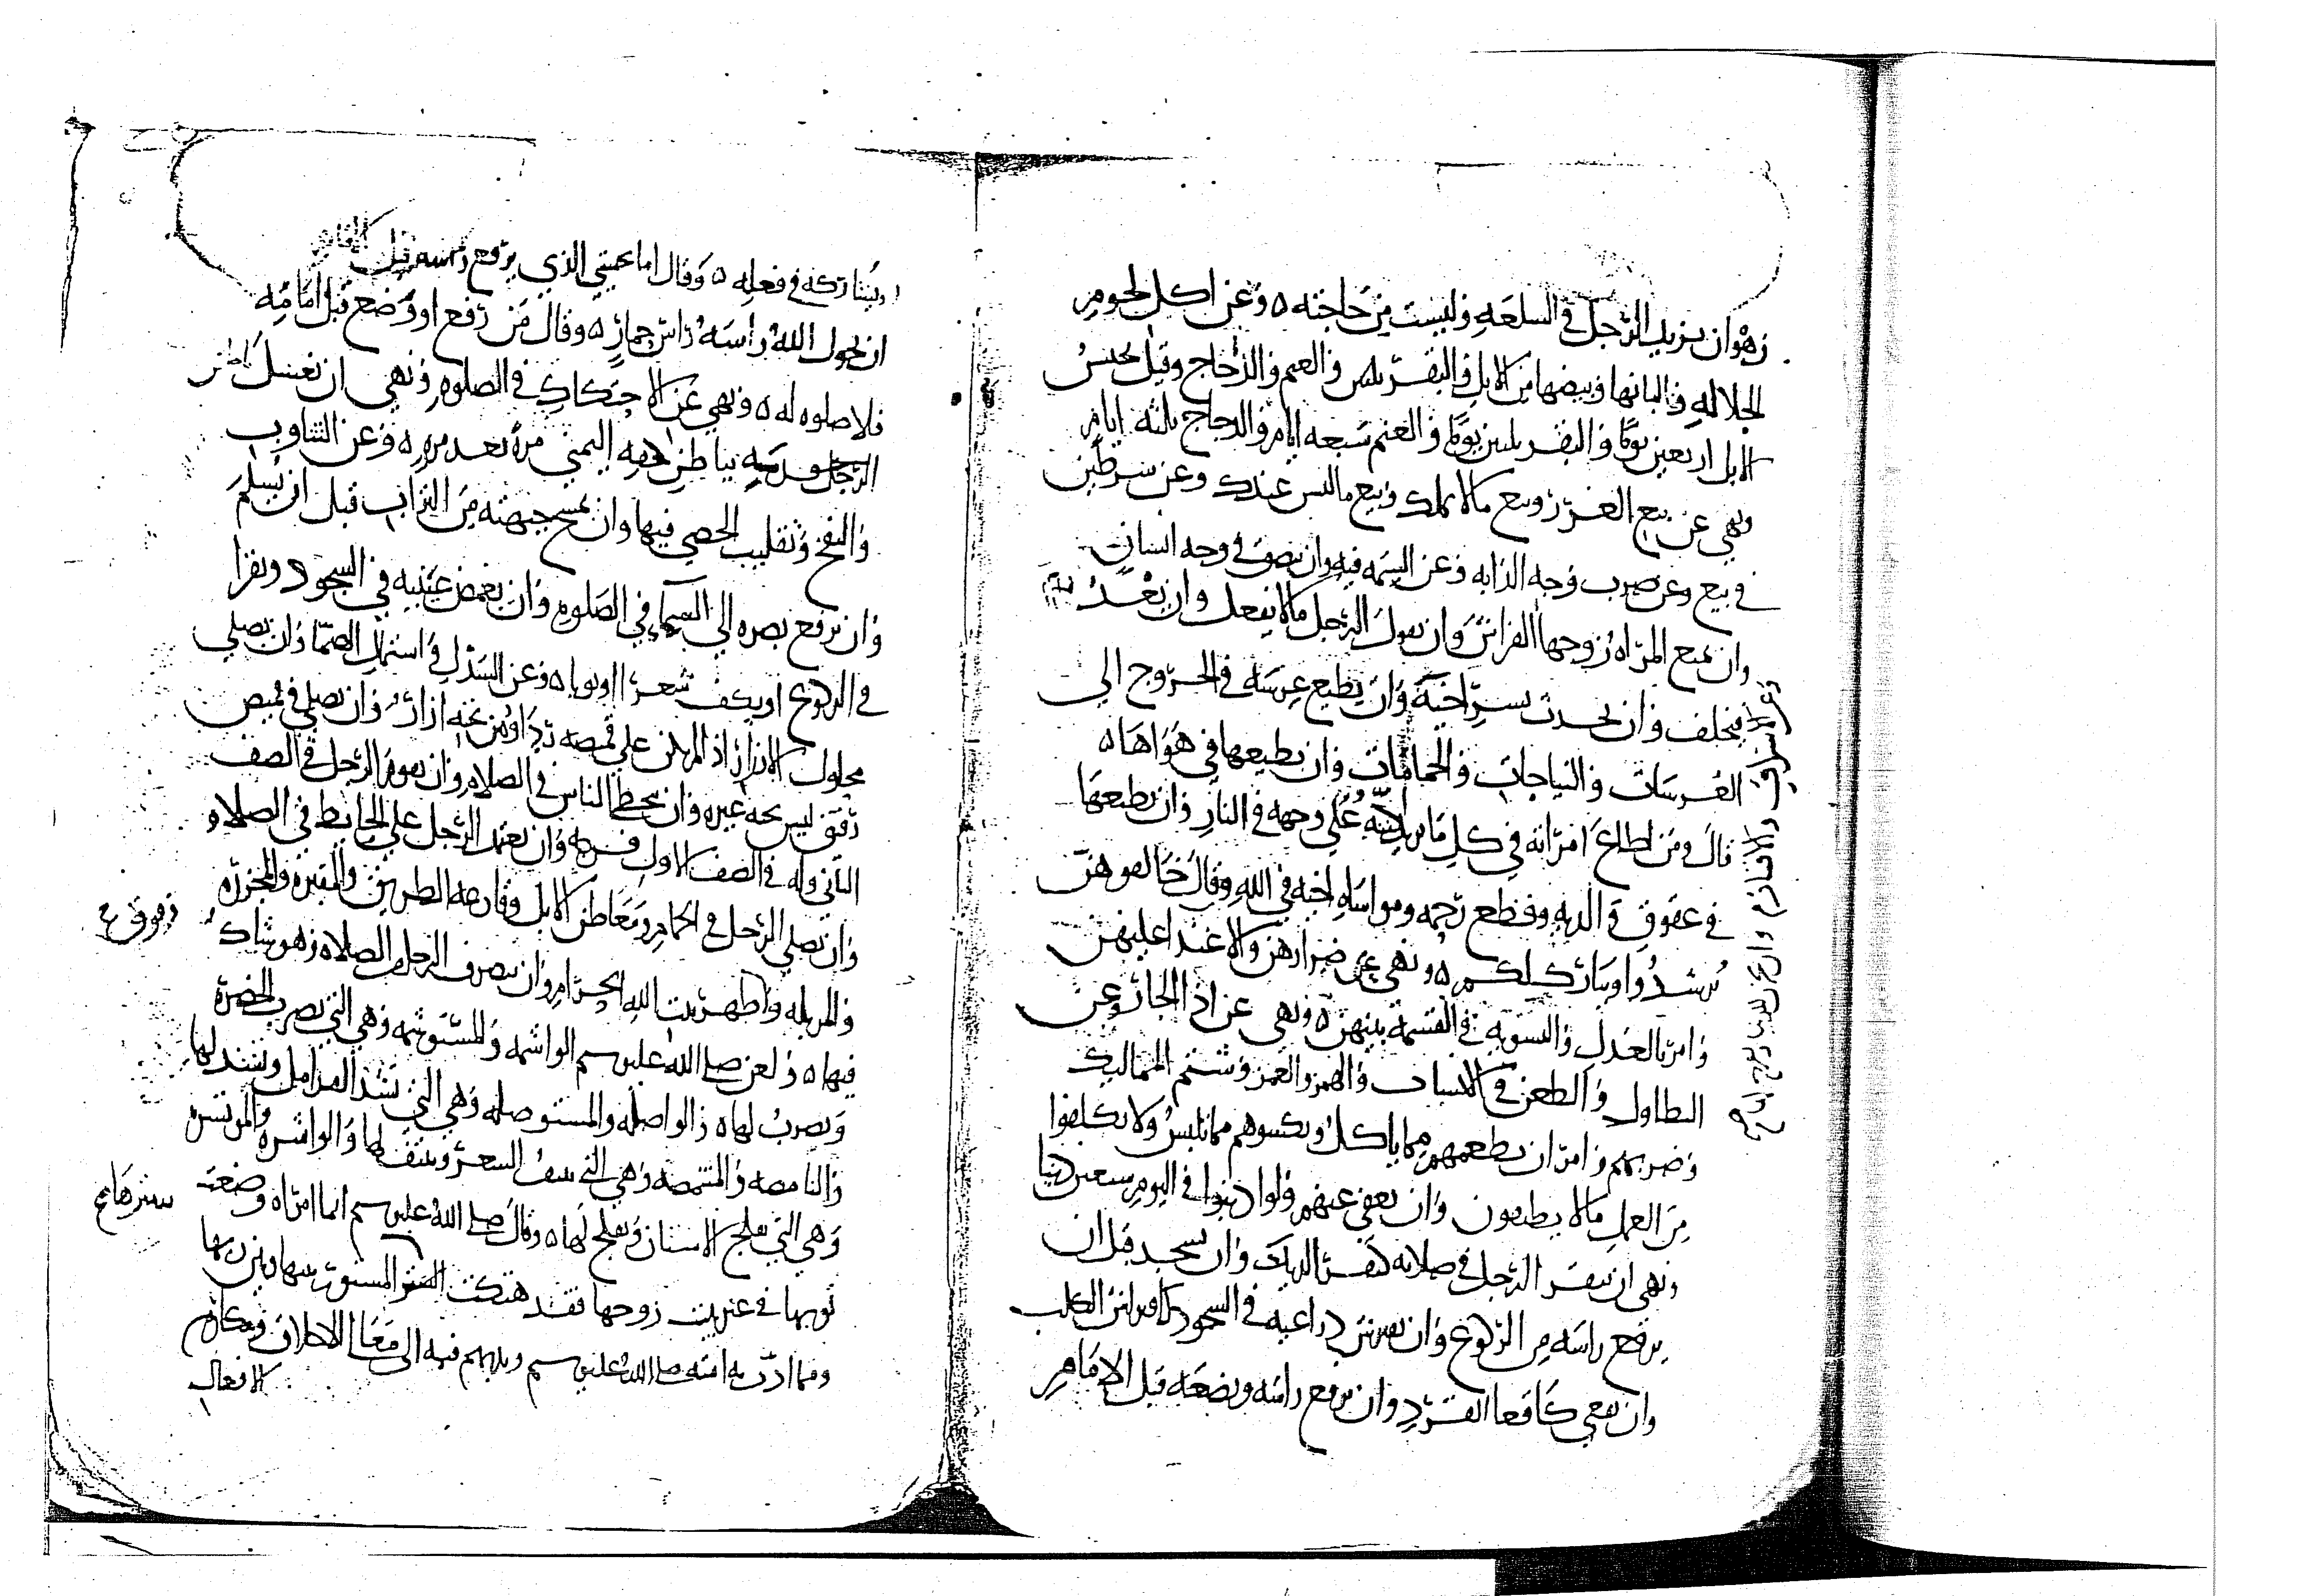 وهو ان يزيد الرجل في السلعه وليست من حاجته ٥ وعن اكل لحوم
الجلاله والبانها وبيضها من الابل والبقر والغنم والدجاج وقيل يحبس
الابل اربعين يوما والبقر ثلثين يوما والغنم سبعه ايام والدجاج ثلثه ايام
ونهي عن بيع الغرر وبيع مالا يملك وبيع ما ليس عندك وعن شرطين
في بيع وعن ضرب وجه الدابه وعن السمه فيه وان يبصق في وجه انسان
وان تمنع المراه زوجها الفراش وان يقول الرجل مالا يفعل وان يعد
فيخلف وان يحدث بسر اخيه وان يطيع عرسه في الخروج الى
العرسات والنياحات والحمامات وان يطيعها في هواها ٥
قال ومن اطاع امراته في كل ما تريد كبته علي وجهه في النار وان يطيعها
في عقوق والديه وقطع رحمه ومواساه اخيه في الله وقال خالفوهن
ترشدوا ويبارك لكم ٥ ونهي عن ضرارهن والاعتدا عليهن
وامر بالعدل والتسويه في القسمه بينهن ٥ ونهي عن اذا الجار وعن
التطاول والطعن في الانساب والهمز والغمز وشتم المماليك
وضربهم وامر ان يطعمهم مما ياكل ويكسوهم مما يلبس ولا يكلفوا
من العمل مالا يطيقون وان يعفي عنهم ولو اذنبوا في اليوم سبعين ذنبا
ونهي ان ينقر الرجل في صلاته كنقر الديك وان يسجد قبل ان
يرفع راسه من الركوع وان يفترش ذراعيه في السجود كافتراش الكلب
وان يقعي كاقعا القرد وان يرفع راسه ويضعه قبل الامام
ويشاركه في فعله ٥ وقال اما يخشي الذي يرفع راسه قبل
ان يحول الله راسه راس حمار ٥ وقال من رفع او وضع قبل امامه
فلا صلوه له ٥ ونهي عن الاحتكاك في الصلوه ونهي ان تغسل
الرجل بباطن كفه اليمني مره بعد مره ٥ وعن التثاوب
والنفخ وتقليب الحصي فيها وان يمسح جبهته من التراب قبل ان يسلم
وان يرفع بصره الي السما في الصلوه وان يغمض عينيه في السجود ويقرا
في الركوع او يكف شعرا او ثوبا ٥ وعن السدل في اشتمال الصما وان يصلي
محلول الازار اذا لم يكن علي قميصه ردا او من تحته ازار وان يصلي في قميص
رقيق ليس تحته غيره وان يتخطا الناس في الصلاه وان يقوم الرجل في الصف
الثاني وله في الصف الاول فرجه وان يعتمد الرجل علي الحايط في الصلاه
وان يصلي الرجل في الحمام ومعاطن الابل وقارعه الطريق والمقبره والمجزره
والمزبله وظهر بيت الله الحرام وان ينصرف الرجل من الصلاه وهو شاك
فيها ٥ ولعن صلى الله عليه وسلم الواشمه والمستوشمه وهي التي تضرب الخضره
وتضرب لها ٥ والواصله والمستوصله وهي التي تشد القرامل وتشد لها
والنامصه والمتنمصه وهي التي تنتف الشعر وينتف لها والواشره والموتشره
وهي التي تفلج الاسنان وتفلج لها ٥ وقال صلى الله عليه وسلم ايما امراه وضعت
ثوبها في غير بيت زوجها فقد هتكت الستر المستور بينها وبين ربها
ومما ادب به امته صلى الله عليه وسلم ونبههم فيه الى معالي الاخلاق ومكارم
الافعال
وفوق ع
سترها ع